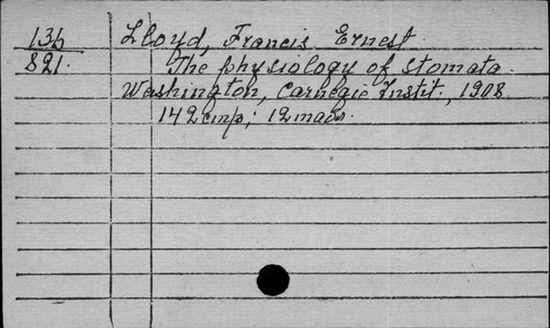 136 Lloyd, Francis Ernest
821. The physiology of stomata
Washington, Carnegie Instit., 1908
142 стр;